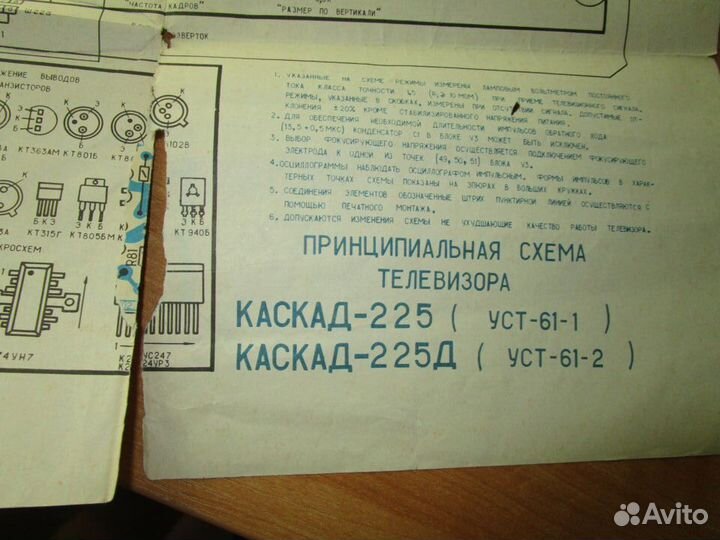 "ЧАСТОТА КАДРОВ"
"РАЗМЕР ПО ВЕРТИКАЛИ"
ВЫВОДОВ
1. УКАЗАННЫЕ НА СХЕМЕ РЕЖИМЫ ИЗМЕРЕНЫ ЛАМПОВЫМ ВОЛЬТМЕТРОМ ПОСТОЯННОГО
ТОКА КЛАССА ТОЧНОСТИ ПРИ ПРИЕМЕ ТЕЛЕВИЗИОННОГО СИГНАЛА.
РЕЖИМЫ, УКАЗАННЫЕ В СКОБКАХ, ИЗМЕРЕНЫ ПРИ ОТСУТСТВИИ СИГНАЛА. ДОПУСТИМЫЕ ОТ-
КЛОНЕНИЯ ± 20% КРОМЕ СТАБИЛИЗИРОВАННОГО НАПРЯЖЕНИЯ ПИТАНИЯ.
2. ДЛЯ ОБЕСПЕЧЕНИЯ НЕОБХОДИМОЙ ДЛИТЕЛЬНОСТИ ИМПУЛЬСОВ ОБРАТНОГО ХОДА
(13,5 + 0,5 МКС) КОНДЕНСАТОР С1 В БЛОКЕ V3 МОЖЕТ БЫТЬ ИСКЛЮЧЕН.
3. ВЫБОР ФОКУСИРУЮЩЕГО НАПРЯЖЕНИЯ ОСУЩЕСТВЛЯЕТСЯ ПОДКЛЮЧЕНИЕМ ФОКУСИРУЮЩЕГО
ЭЛЕКТРОДА К ОДНОЙ ИЗ ТОЧЕК (49, 50, 51) БЛОКА V3.
4. ОСЦИЛЛОГРАММЫ НАБЛЮДАТЬ ОСЦИЛЛОГРАФОМ ИМПУЛЬСНЫМ. ФОРМЫ ИМПУЛЬСОВ В ХАРАК-
ТЕРНЫХ ТОЧКАХ СХЕМЫ ПОКАЗАНЫ НА ЭПЮРАХ В БОЛЬШИХ КРУЖКАХ.
5. СОЕДИНЕНИЯ ЭЛЕМЕНТОВ ОБОЗНАЧЕННЫЕ ШТРИХ ПУНКТИРНОЙ ЛИНИЕЙ ОСУЩЕСТВЛЯЮТСЯ С
ПОМОЩЬЮ ПЕЧАТНОГО МОНТАЖА.
6. ДОПУСКАЮТСЯ ИЗМЕНЕНИЯ СХЕМЫ НЕ УХУДШАЮЩИЕ КАЧЕСТВО РАБОТЫ ТЕЛЕВИЗОРА.
КТ363АМ КТ801Б
Б К Э
Э К Б
КТ315Г КТ805БМ КТ940Б
R81
ПРИНЦИПИАЛЬНАЯ СХЕМА
ТЕЛЕВИЗОРА
КАСКАД-225 ( УСТ-61-1 )
КАСКАД-225Д ( УСТ-61-2 )
Avito